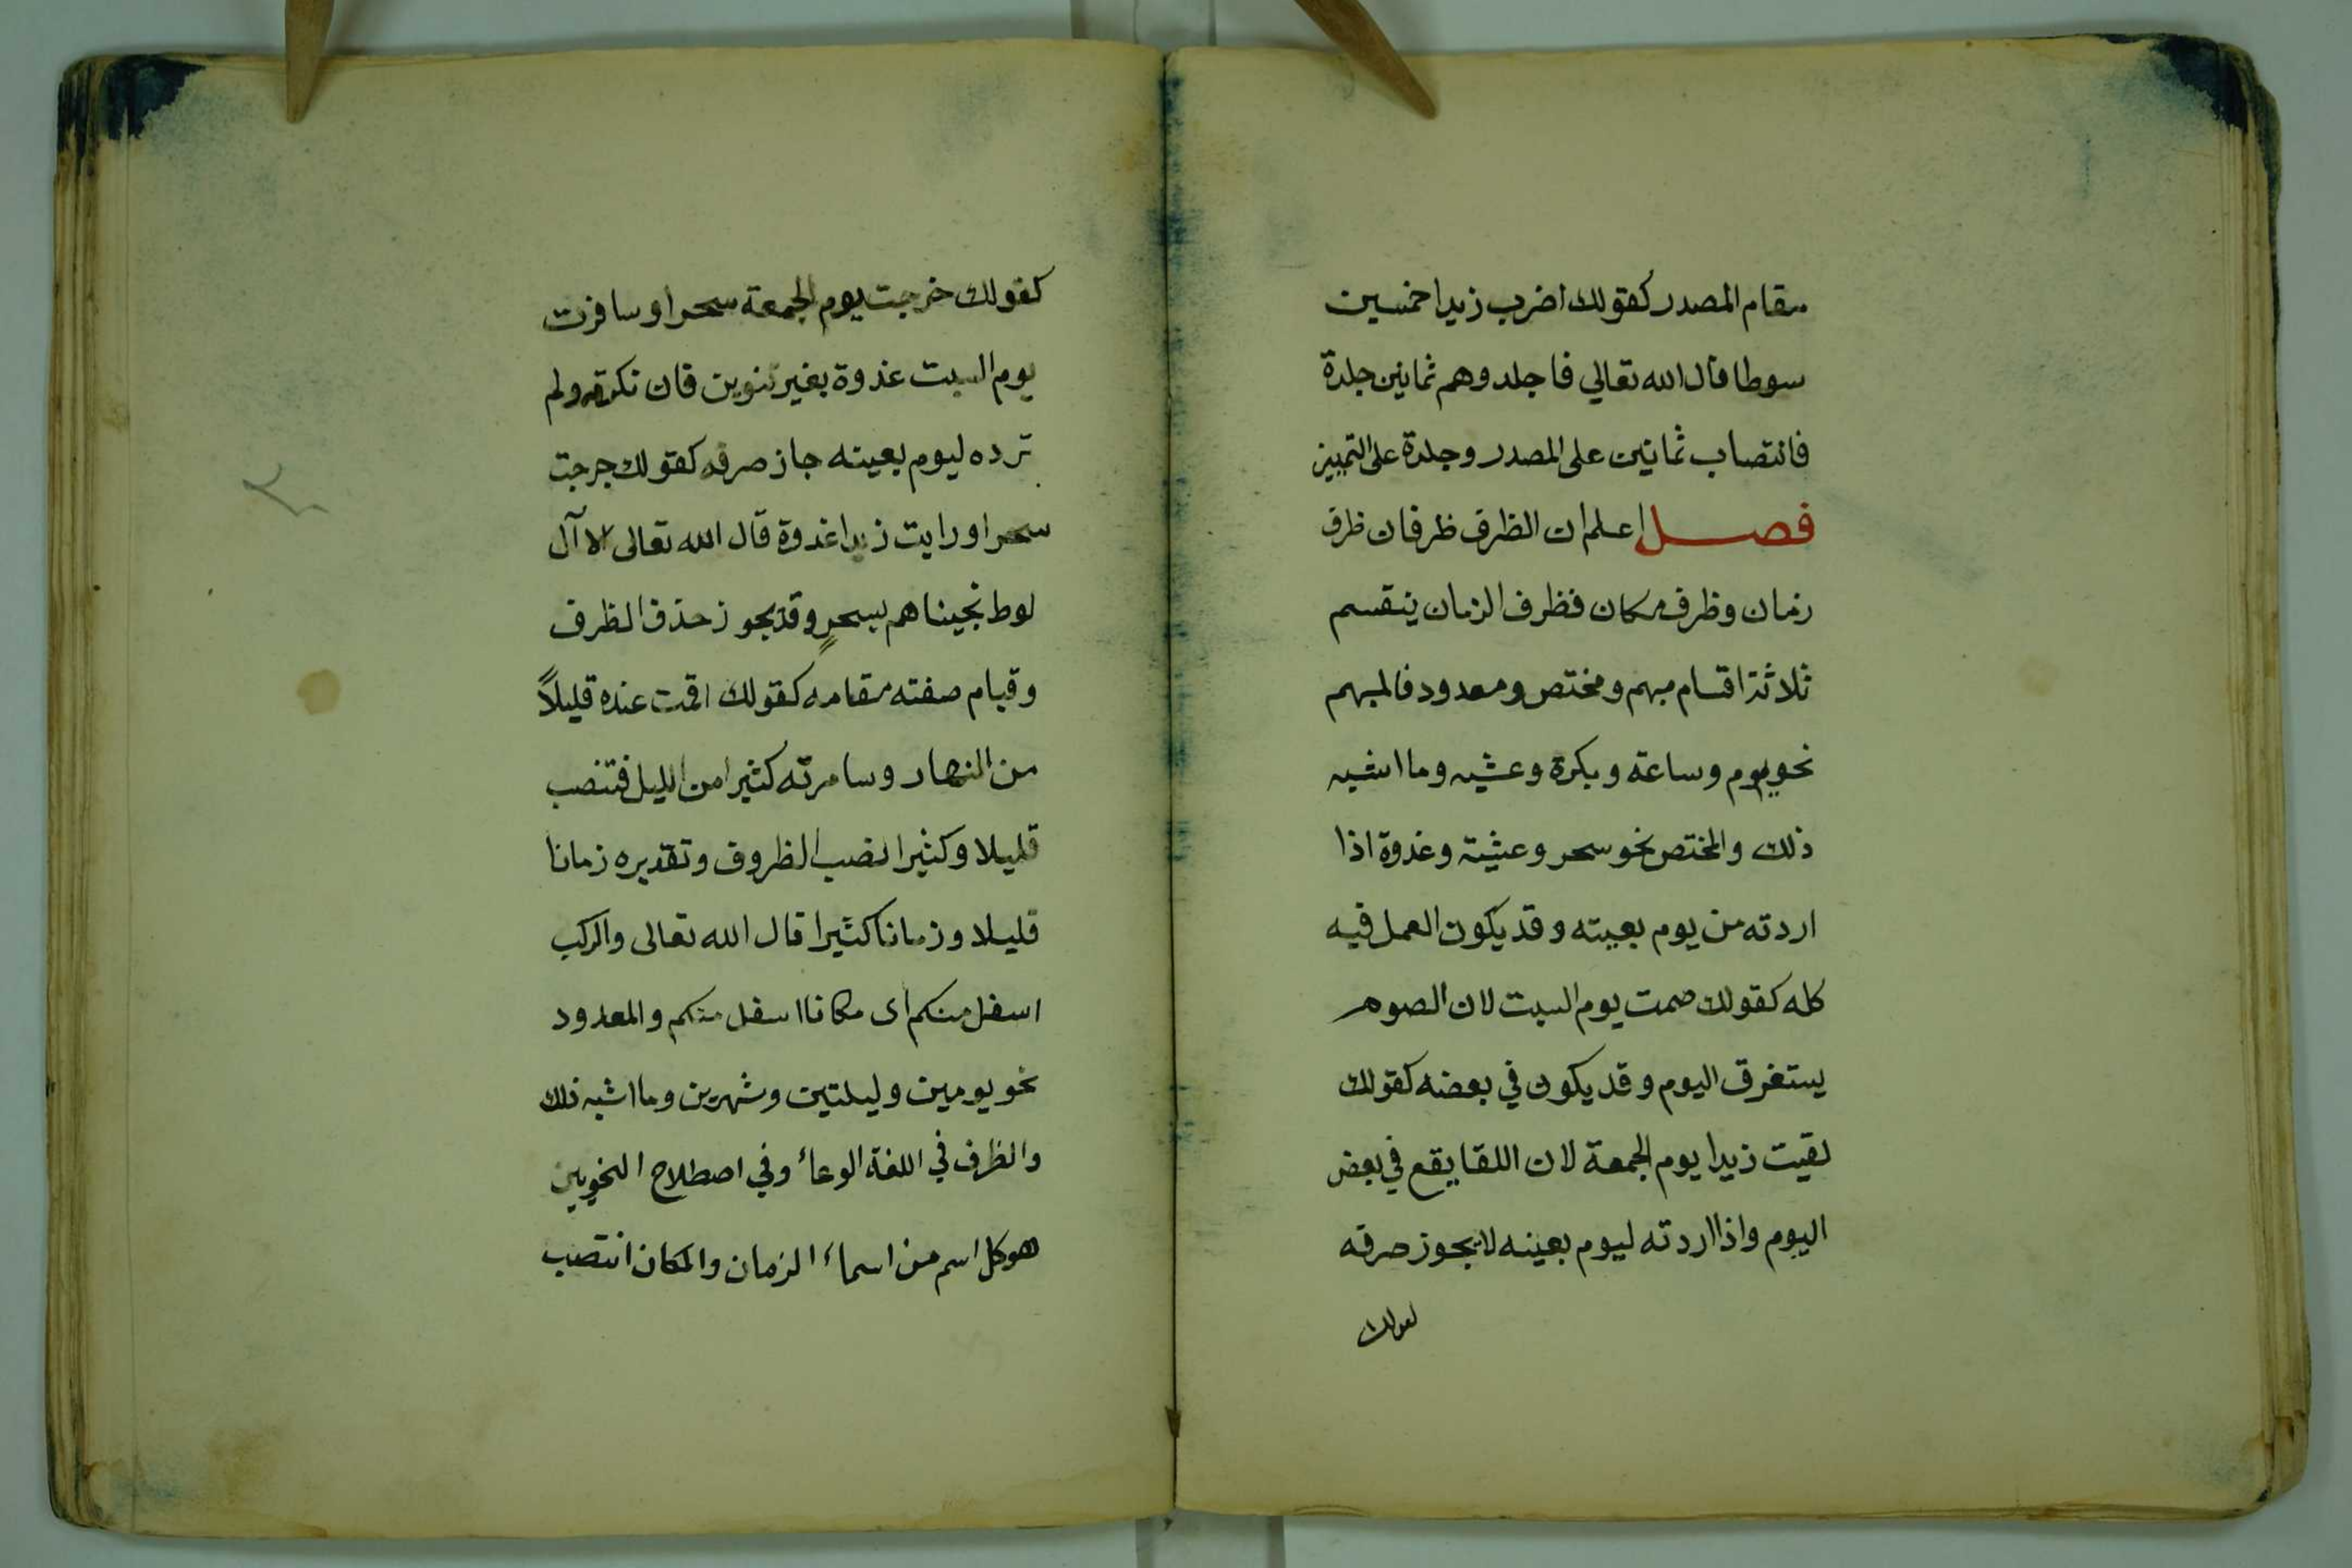 مقام المصدر كقولك اضرب زيدا خمسين
سوطا قال الله تعالي فاجلدوهم ثمانين جلدة
فانتصاب ثمانين على المصدر وجلدة على التمييز
فصل اعلم ان الظرف ظرفان ظرف
زمان وظرف مكان فظرف الزمان ينقسم
ثلاثة اقسام مبهم ومختص ومعدود فالمبهم
نحو يوم وساعة وبكرة وعشيه وما اشبه
ذلك والمختص نحو سحر وعشية وغدوة اذا
اردته من يوم بعينه وقد يكون العمل فيه
كله كقولك صمت يوم السبت لان الصوم
يستغرق اليوم وقد يكون في بعضه كقولك
لقيت زيدا يوم الجمعة لان اللقا يقع في بعض
اليوم واذا اردته ليوم بعينه لا يجوز صرفه
كقولك
كقولك خرجت يوم الجمعة سحرا وسافرت
يوم السبت غدوة بغير تنوين فان نكرته ولم
ترده ليوم بعينه جاز صرفه كقولك خرجت
سحرا ورايت زيدا غدوة قال الله تعالى الا آل
لوط نجيناهم بسحرٍ وقد يجوز حذف الظرف
وقيام صفته مقامه كقولك اقمت عنده قليلاً
من النهار وسامرته كثيرا من الليل فتنصب
قليلا وكثيرا نصب الظروف وتقديره زمانا
قليلا وزمانا كثيرا قال الله تعالى والركب
اسفل منكم اى مكانا اسفل منكم والمعدود
نحو يومين وليلتين وشهرين وما اشبه ذلك
والظرف في اللغة الوعاء وفي اصطلاح النحويين
هو كل اسم من اسماء الزمان والمكان انتصب